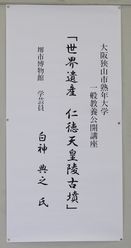 大阪狭山市熟年大学
一般教養公開講座
「世界遺産 仁徳天皇陵古墳」
堺市博物館 学芸員
白神 典之 氏